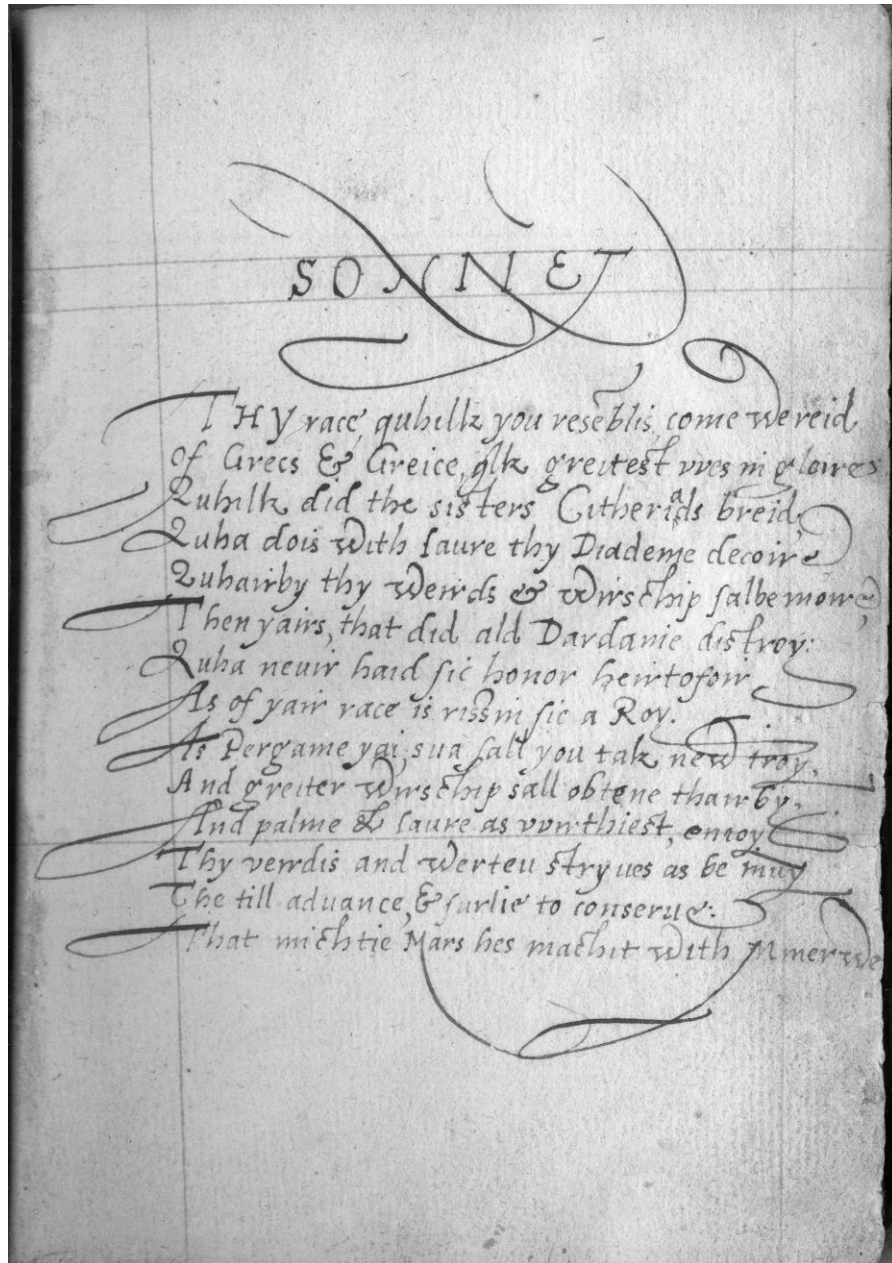 SONNET
THY race, quhilk you reseblis, come we reid
Of Grecs & Greice, qlk greitest wes in gloire
Quhilk did the sisters Citheriads breid,
Quha dois with laure thy Diademe decoire
Quhairby thy weirds & wirschip salbe moire,
Then yairs, that did ald Dardanie distroy:
Quha nevir haid sic honor heirtofoir
As of yair race is rissin sic a Roy.
As Pergame yai, sua sall you tak new troy,
And greiter wirschip sall obtene thairby,
And palme & laure as wirthiest, enioy
Thy veirdis and werteu stryues as be inuy
The till aduance, & surlie to conserue:
That michtie Mars hes machit with Minerwe